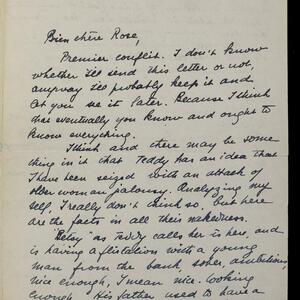 Bien chère Rose,
Premier conflit. I don't know
whether I'll send this letter or not,
anyway I'll probably keep it and
let you see it later. Because I think
has eventually you know and ought to
know everything.
I think and there may be some
thing in it that Teddy has an idea that
I have been seized with an attack of
older woman jalousy. Analyzing my
self, I really don't think so, but here
are the facts in all their nakedness.
"Betsy" as Teddy calls her is here, and
is having a flirtation with a young
man from the bank, sober, ambitious,
nice enough, I mean nice looking
enough. His father used to have a